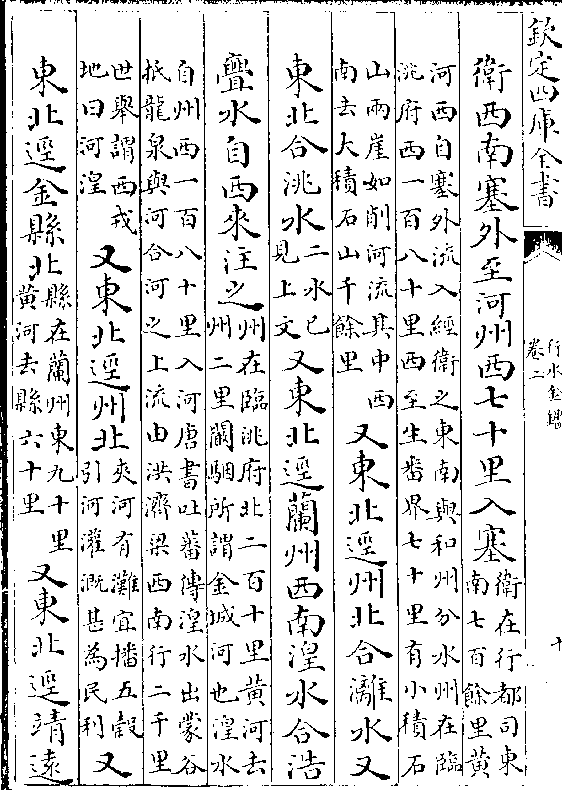 欽定四庫全書
行水金鑑
卷二
十
衛西南塞外至河州西七十里入塞
衛在行都司東
南七百餘里黄
河西自塞外流入經衛之東南與和州分水州在臨
洮府西一百八十里西至生畨界七十里有小積石
山兩崖如削河流其中西
南去大積石山千餘里
又東北逕州北合離水又
東北合洮水
二水已
見上文
又東北逕蘭州西南湟水合浩
亹水自西來注之
州在臨洮府北二百十里黄河去
州二里闞駰所謂金城河也湟水
自州西一百八十里入河唐書吐蕃傳湟水出蒙谷
抵龍泉與河合河之上流由洪濟梁西南行二千里
世舉謂西戎
地曰河湟
又東北逕州北
夾河有灘宜播五穀
引河灌溉甚為民利
又
東北逕金縣北
縣在蘭州東九十里
黄河去縣六十里
又東北逕靖遠